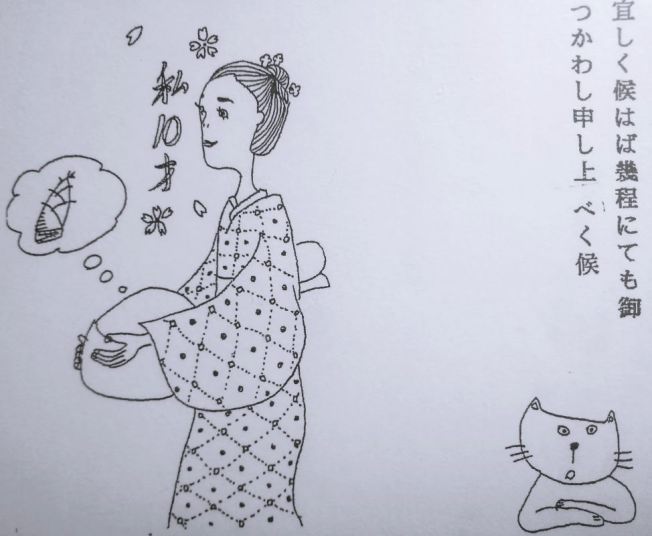 宜しく候はば幾程にても御
つかわし申し上べく候
私10才